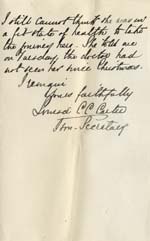 I still cannot think she was in
a fit state of health to take
the journey here. She told me
on Tuesday, the doctor had
not seen her since Christmas.
I remain
Yours faithfully
C C Carter
Hon. Secretary